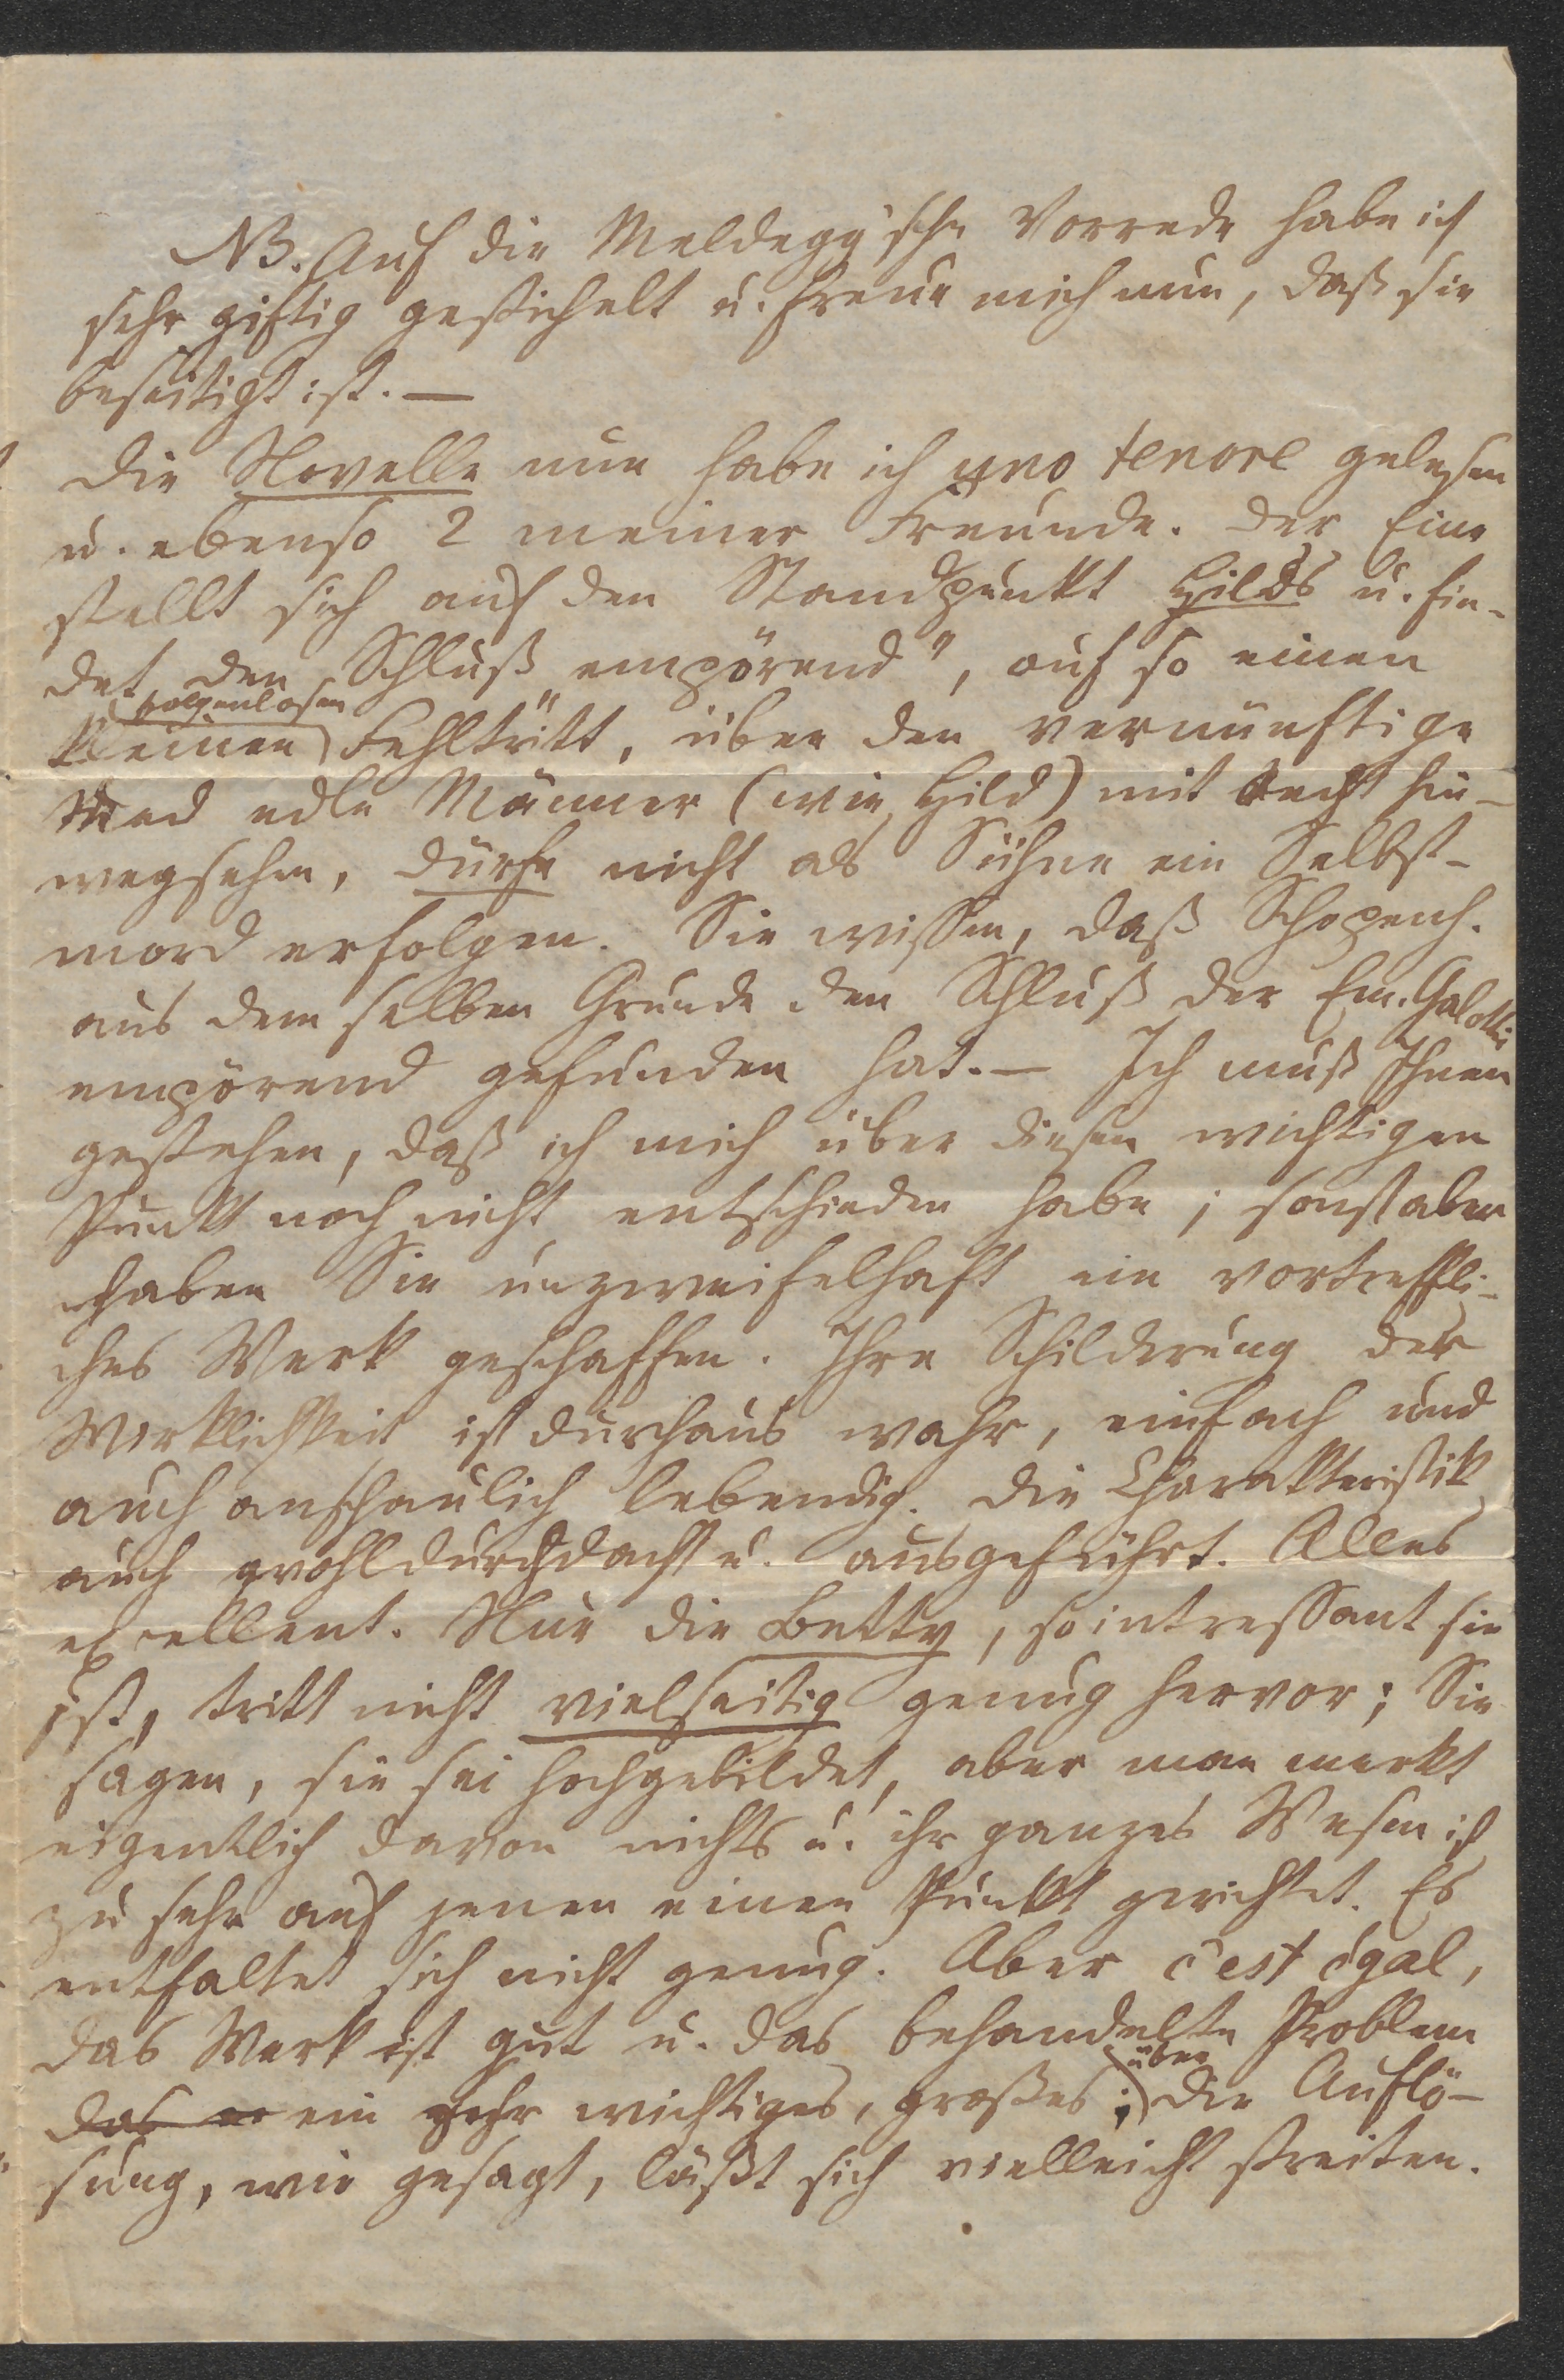 NB. Auf die Meldegg'sche Vorrede habe ich
sehr giftig gestichelt u. freue mich nun, daß sie
beseitigt ist. —
Die Novelle nun habe ich uno tenore gelesen
u. ebenso 2 meiner Freunde. Der Eine
stellt sich auf den Standpunkt Hild's u. fin-
det den Schluß „empörend“, auf so einen
kleinen folgenlosen Fehltritt, über den vernünftige
und edle Männer (wie Hild) mit Recht hin-
wegsehen, dürfe nicht als Sühne ein Selbst-
mord erfolgen. Sie wissen, daß Schopenh.
aus dem selben Grunde den Schluß der Em. Galotti
empörend gefunden hat. — Ich muß Ihnen
gestehen, daß ich mich über diesen wichtigen
Punkt noch nicht entschieden habe; sonst aber
haben Sie unzweifelhaft ein vortreffli-
ches Werk geschaffen. Ihre Schilderung der
Wirklichkeit ist durchaus wahr, einfach und
auch anschaulich lebendig. Die Charakteristik
auch wohldurchdacht u. ausgeführt. Alles
excellent. Nur die Betty, so intressant sie
ist, tritt nicht vielseitig genug hervor; Sie
sagen, sie sei hochgebildet, aber man merkt
eigentlich davon nichts u. ihr ganzes Wesen ist
zu sehr auf jenen einen Punkt gerichtet. Es
entfaltet sich nicht genug. Aber c'est égal,
das Werk ist gut u. das behandelte Problem
das ein sehr wichtiges, großes; über die Auflö-
sung, wie gesagt, läßt sich vielleicht streiten.